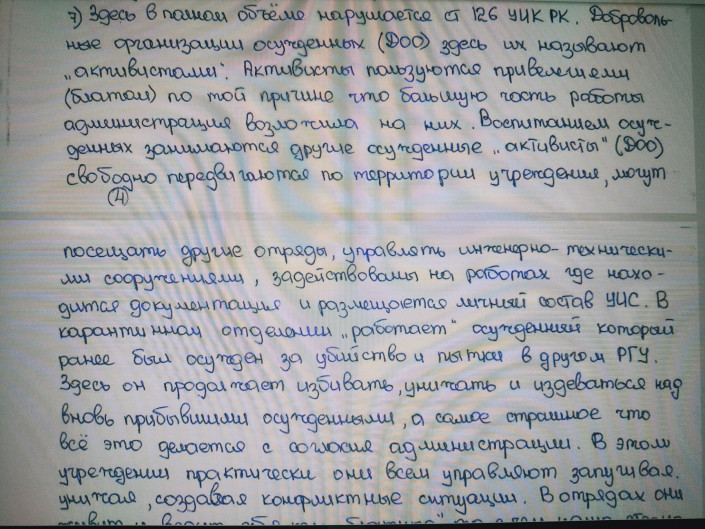 7) Здесь в полном объёме нарушается ст 126 УИК РК. Доброволь-
ные организации осужденных (ДОО) здесь их называют
„активистами". Активисты пользуются привелегиями
(блатом) по той причине что большую часть работы
администрация возложила на них. Воспитанием осуж-
денных занимаются другие осужденные „активисты" (ДОО)
свободно передвигаются по территории учреждения, могут
(4)
посещать другие отряды, управлять инженерно-технически-
ми сооружениями, задействованы на работах где нахо-
дится документация и размещается личный состав УИС. В
карантинном отделении „работает" осужденный который
ранее был осужден за убийство и пытки в другом РГУ.
Здесь он продолжает избивать, унижать и издеваться над
вновь прибывшими осужденными, а самое страшное что
всё это делается с согласия администрации. В этом
учреждении практически они всем управляют запугивая.
унижая, создавая конфликтные ситуации. В отрядах они